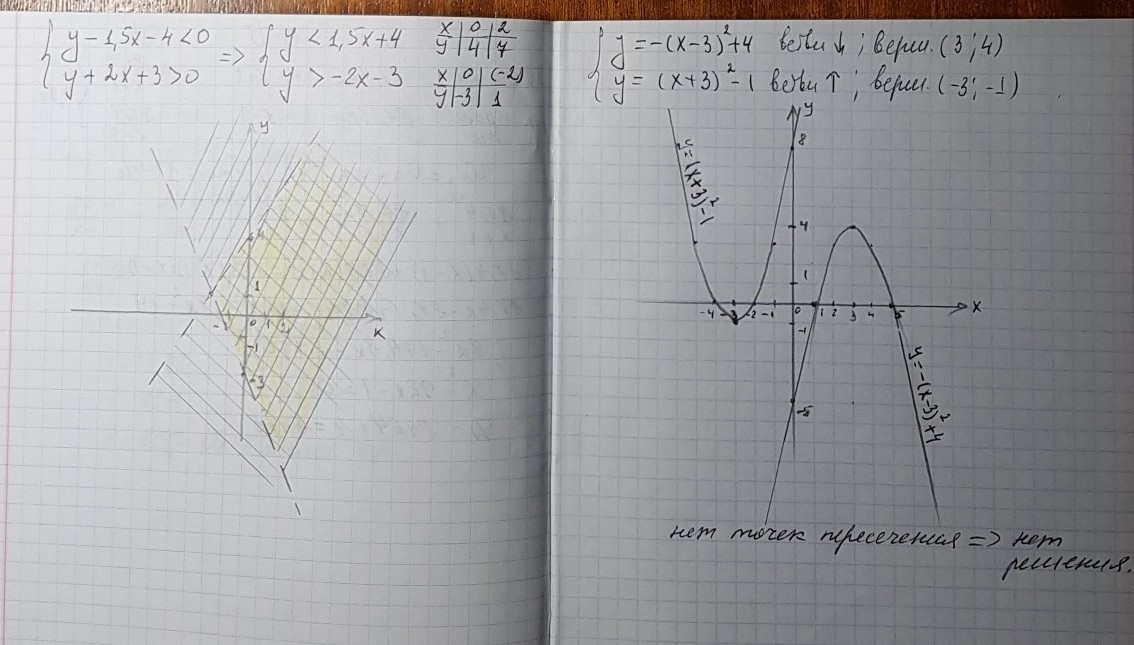 { y - 1,5x - 4 < 0 => { y < 1,5x + 4 x | 0 | 2
{ y + 2x + 3 > 0 y | 4 | 7
y > -2x - 3 x | 0 | (-2)
y | -3 | 1
y
4
1
-1 0 1 2 x
-1
-3
{ y = -(x-3)² + 4 ветви ↓ ; верш. (3 ; 4)
{ y = (x+3)² - 1 ветви ↑ ; верш. (-3 ; -1)
y
8
y = (x+3)² - 1
4
1
-4 -3 -2 -1 0 1 2 3 4 5 x
-1
y = -(x-3)² + 4
-5
нет точек пересечения => нет
решения.